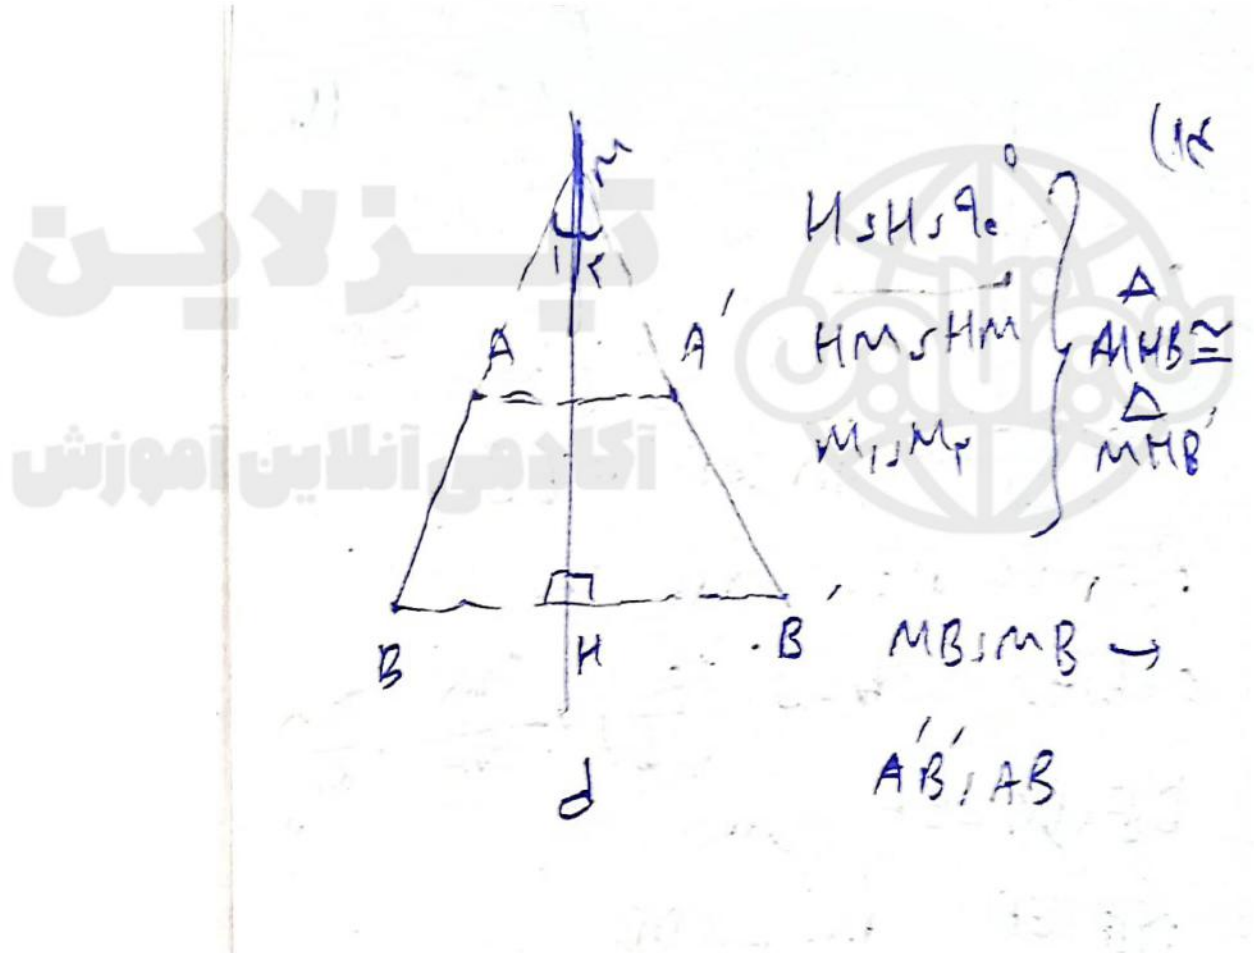 ۱۴)
M
۱ ۲
A A′
B H B′
d
H = H = ۹۰°
HM = HM
M۱ = M۲
△
MHB ≅
△
MHB′
MB = MB′ →
A′B′ = AB
تیزلاین
آکادمی آنلاین آموزش